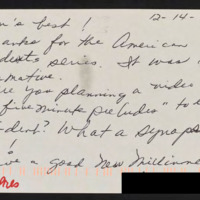 n's best! 12-14-
anks for the American
dents series. It was
rmative.
re you planning a video
"five minute preludes" to
-dent? What a synops
!
ve a good New Millinne